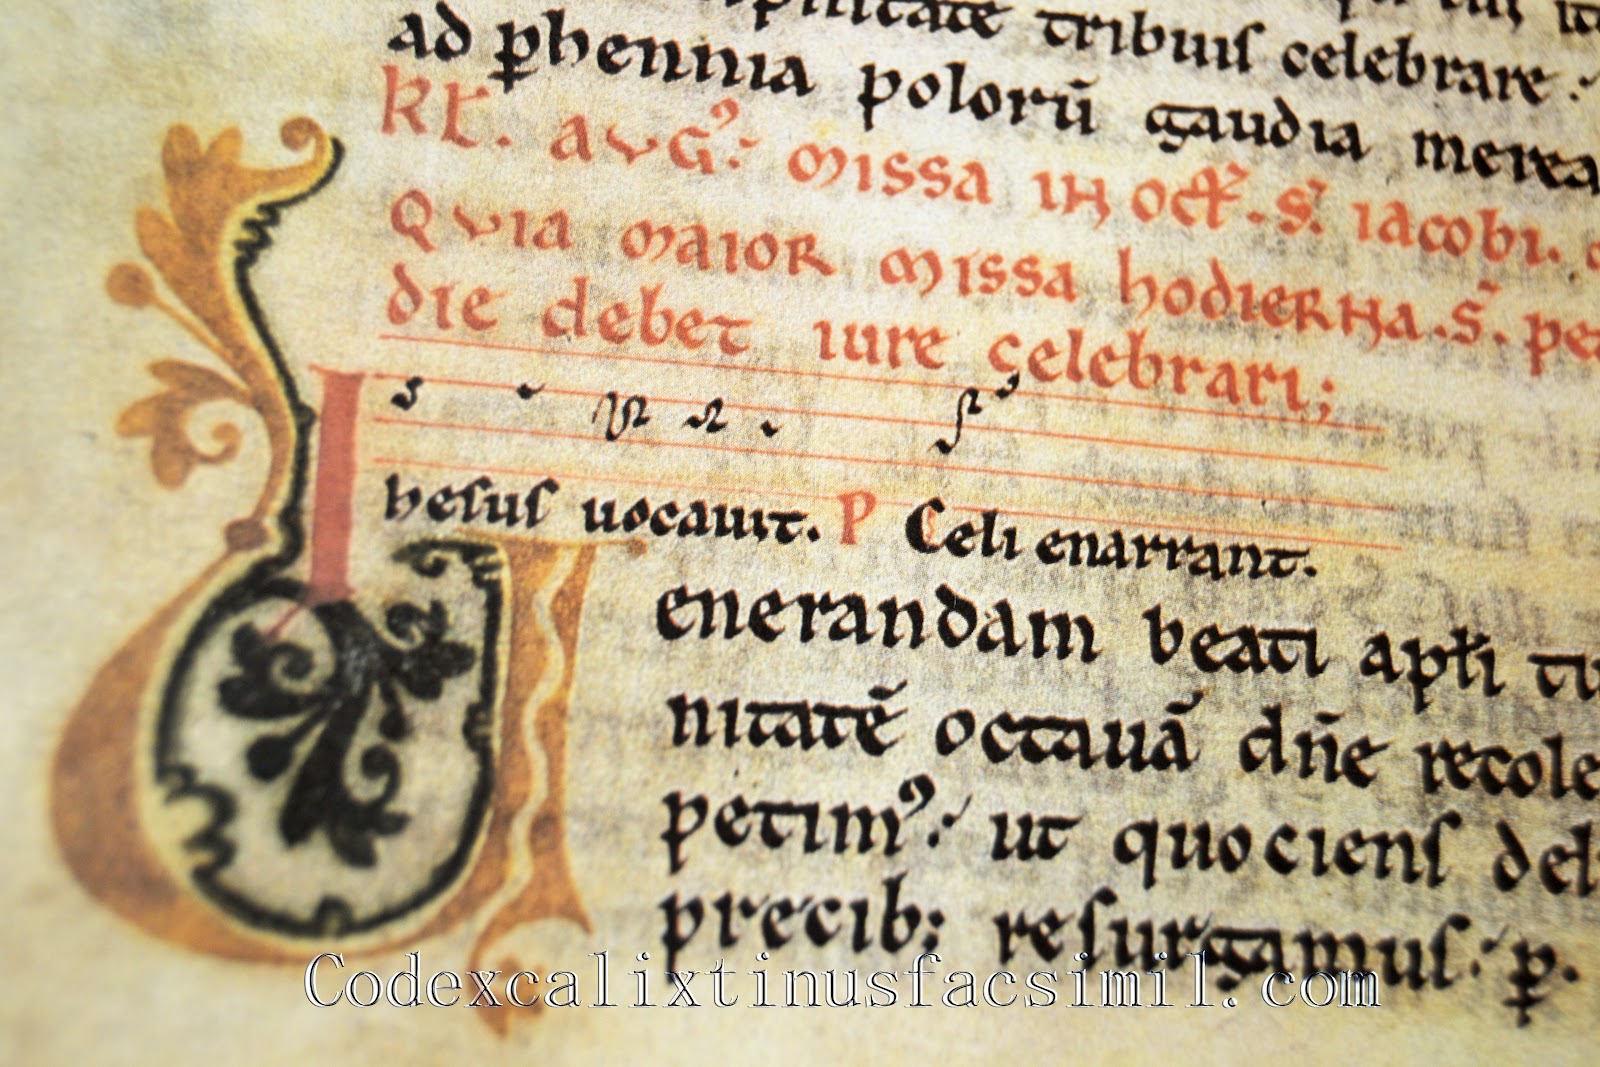 tribuis celebrare:
ad phennia polorũ gaudia merea
kł. AVGꝰ: Missa iN Oct̃. S. iacobi.
QVIA MAIOR Missa hodierNa. S. pe
die debet iure celebrari;
Ihesus uocauit. P Celi enarrant.
Venerandam beati apłi
nitatẽ octauã dñe recole
petimꝰ: ut quociens del
precib; resurgamus: p.
Codexcalixtinusfacsimil.com